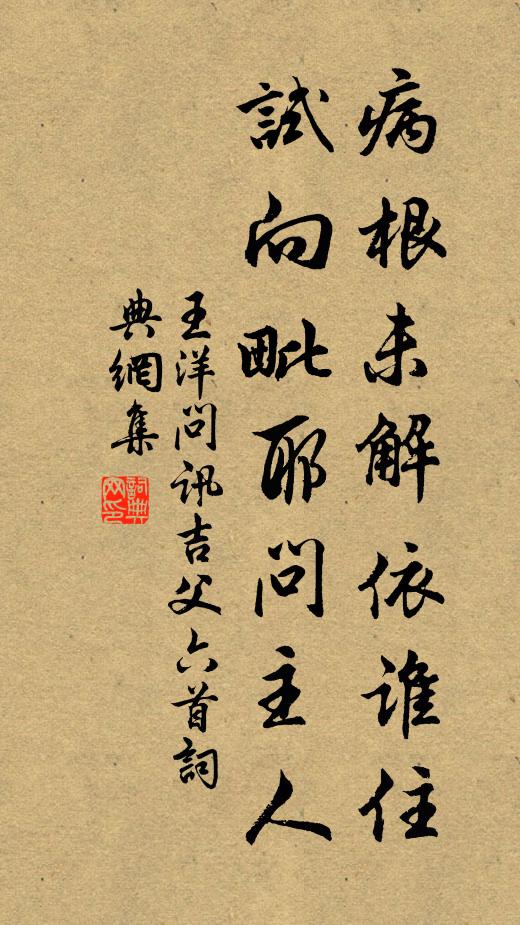 病根未解依誰住
試向毗耶問主人
王洋問訊吉父六首詞
典網集
詞典网印